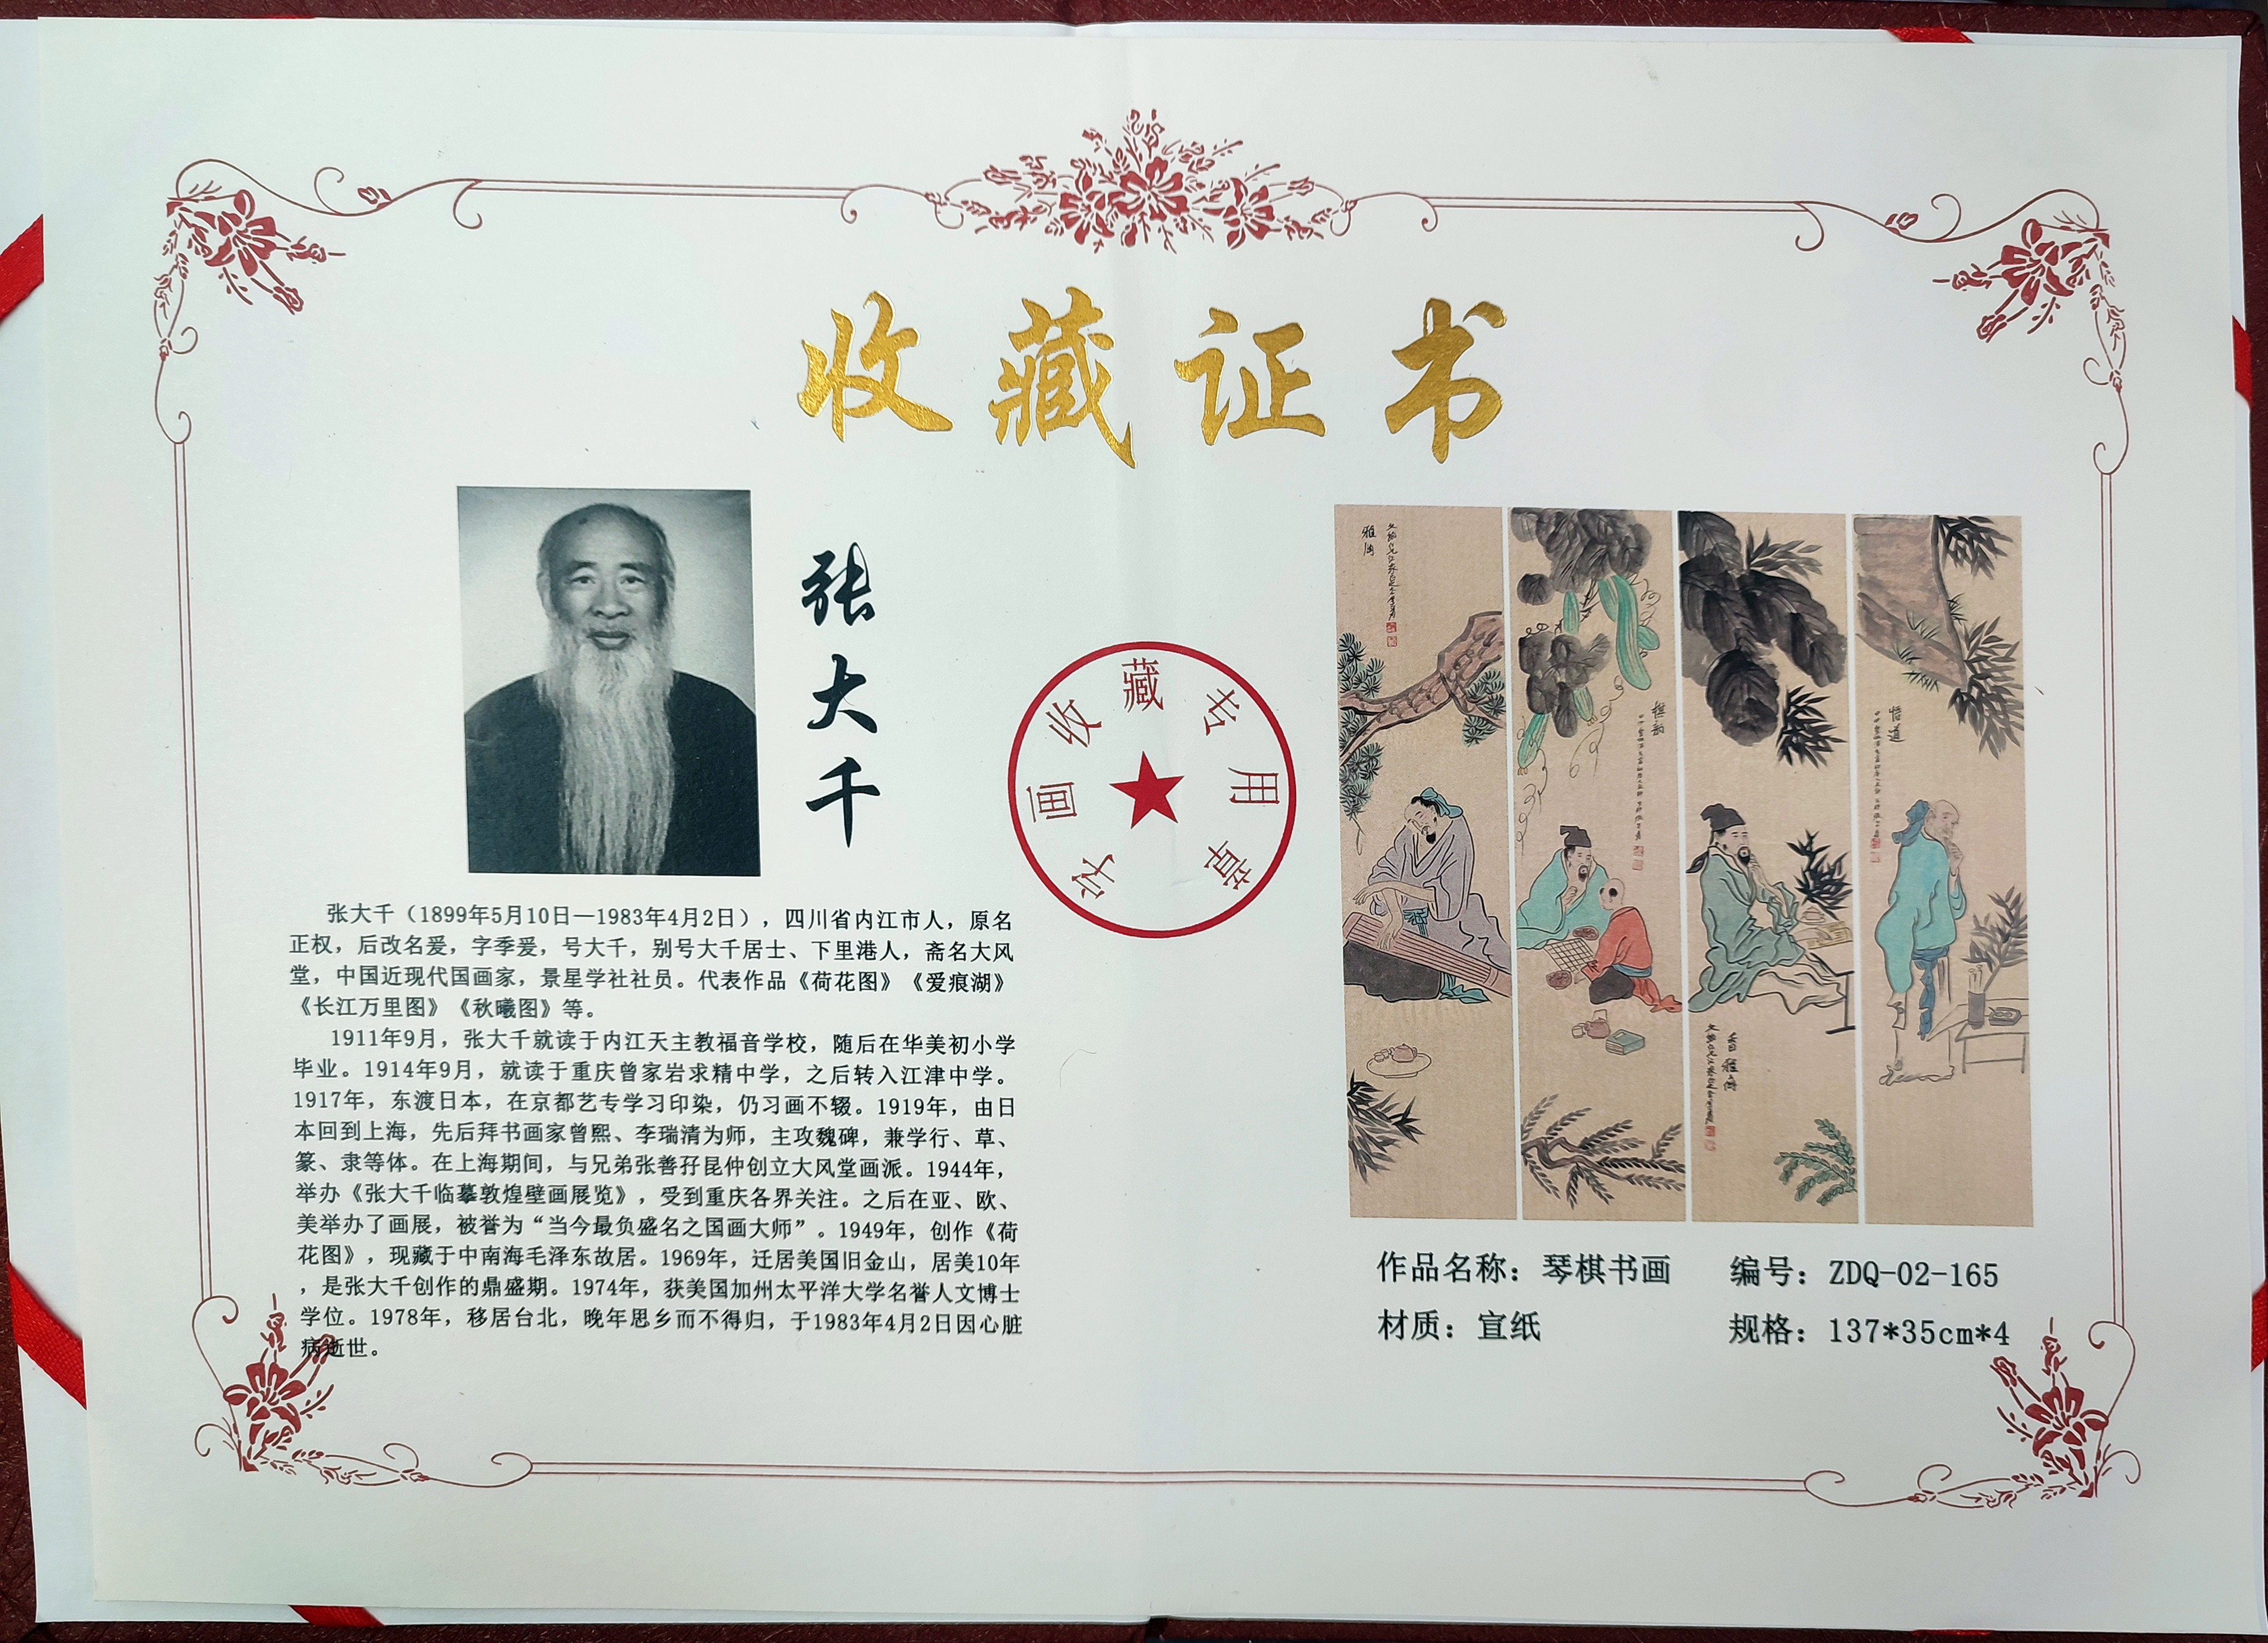 收藏证书
张大千
字画收藏专用章
张大千（1899年5月10日—1983年4月2日），四川省内江市人，原名
正权，后改名爰，字季爰，号大千，别号大千居士、下里港人，斋名大风
堂，中国近现代国画家，景星学社社员。代表作品《荷花图》《爱痕湖》
《长江万里图》《秋曦图》等。
1911年9月，张大千就读于内江天主教福音学校，随后在华美初小学
毕业。1914年9月，就读于重庆曾家岩求精中学，之后转入江津中学。
1917年，东渡日本，在京都艺专学习印染，仍习画不辍。1919年，由日
本回到上海，先后拜书画家曾熙、李瑞清为师，主攻魏碑，兼学行、草、
篆、隶等体。在上海期间，与兄弟张善孖昆仲创立大风堂画派。1944年，
举办《张大千临摹敦煌壁画展览》，受到重庆各界关注。之后在亚、欧、
美举办了画展，被誉为“当今最负盛名之国画大师”。1949年，创作《荷
花图》，现藏于中南海毛泽东故居。1969年，迁居美国旧金山，居美10年
，是张大千创作的鼎盛期。1974年，获美国加州太平洋大学名誉人文博士
学位。1978年，移居台北，晚年思乡而不得归，于1983年4月2日因心脏
病逝世。
悟道
作品名称：琴棋书画
编号：ZDQ-02-165
材质：宣纸
规格：137*35cm*4